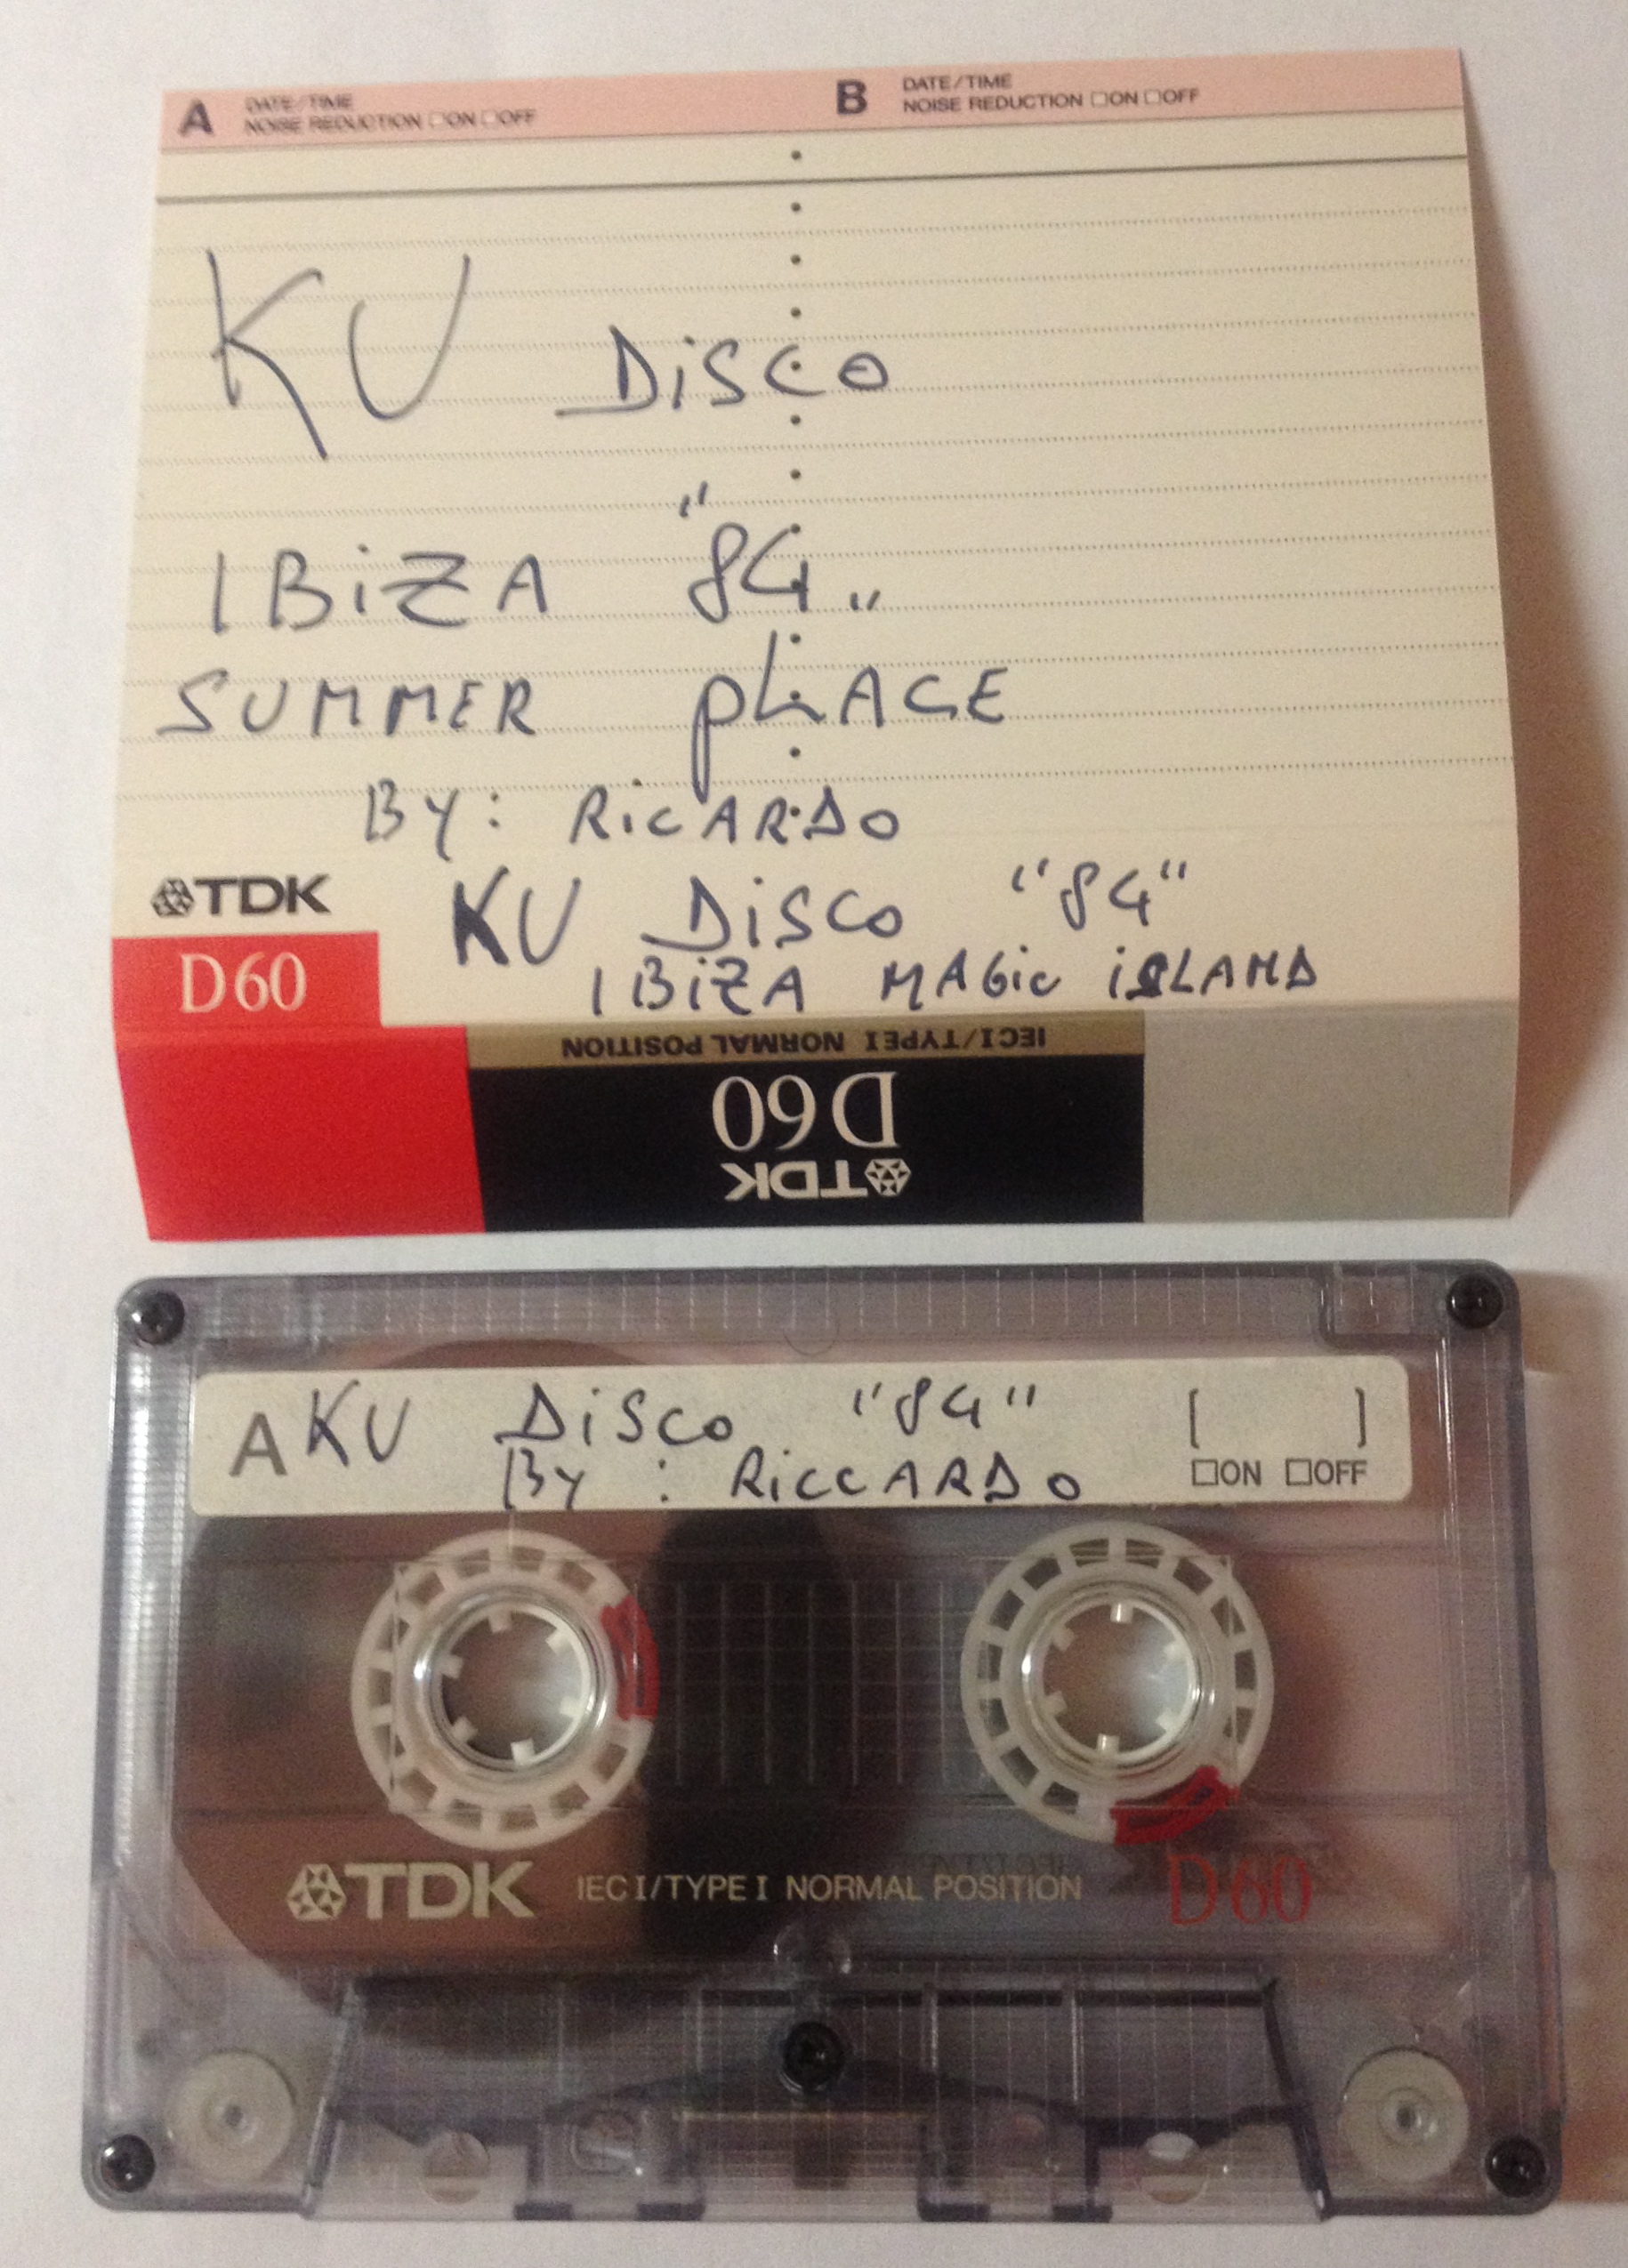 A DATE/TIME
NOISE REDUCTION □ON □OFF
B DATE/TIME
NOISE REDUCTION □ON □OFF
KU DiSCO
IBiZA "84"
SUMMER pLACE
BY: RiCARDO
TDK
D60
KU DiSCO "84"
IBiZA MAGic iSLAND
IECI/TYPEI NORMAL POSITION
D60
TDK
A KU DiSCO "84" [ ]
By : RiCCARDO □ON □OFF
TDK IECI/TYPEI NORMAL POSITION D60